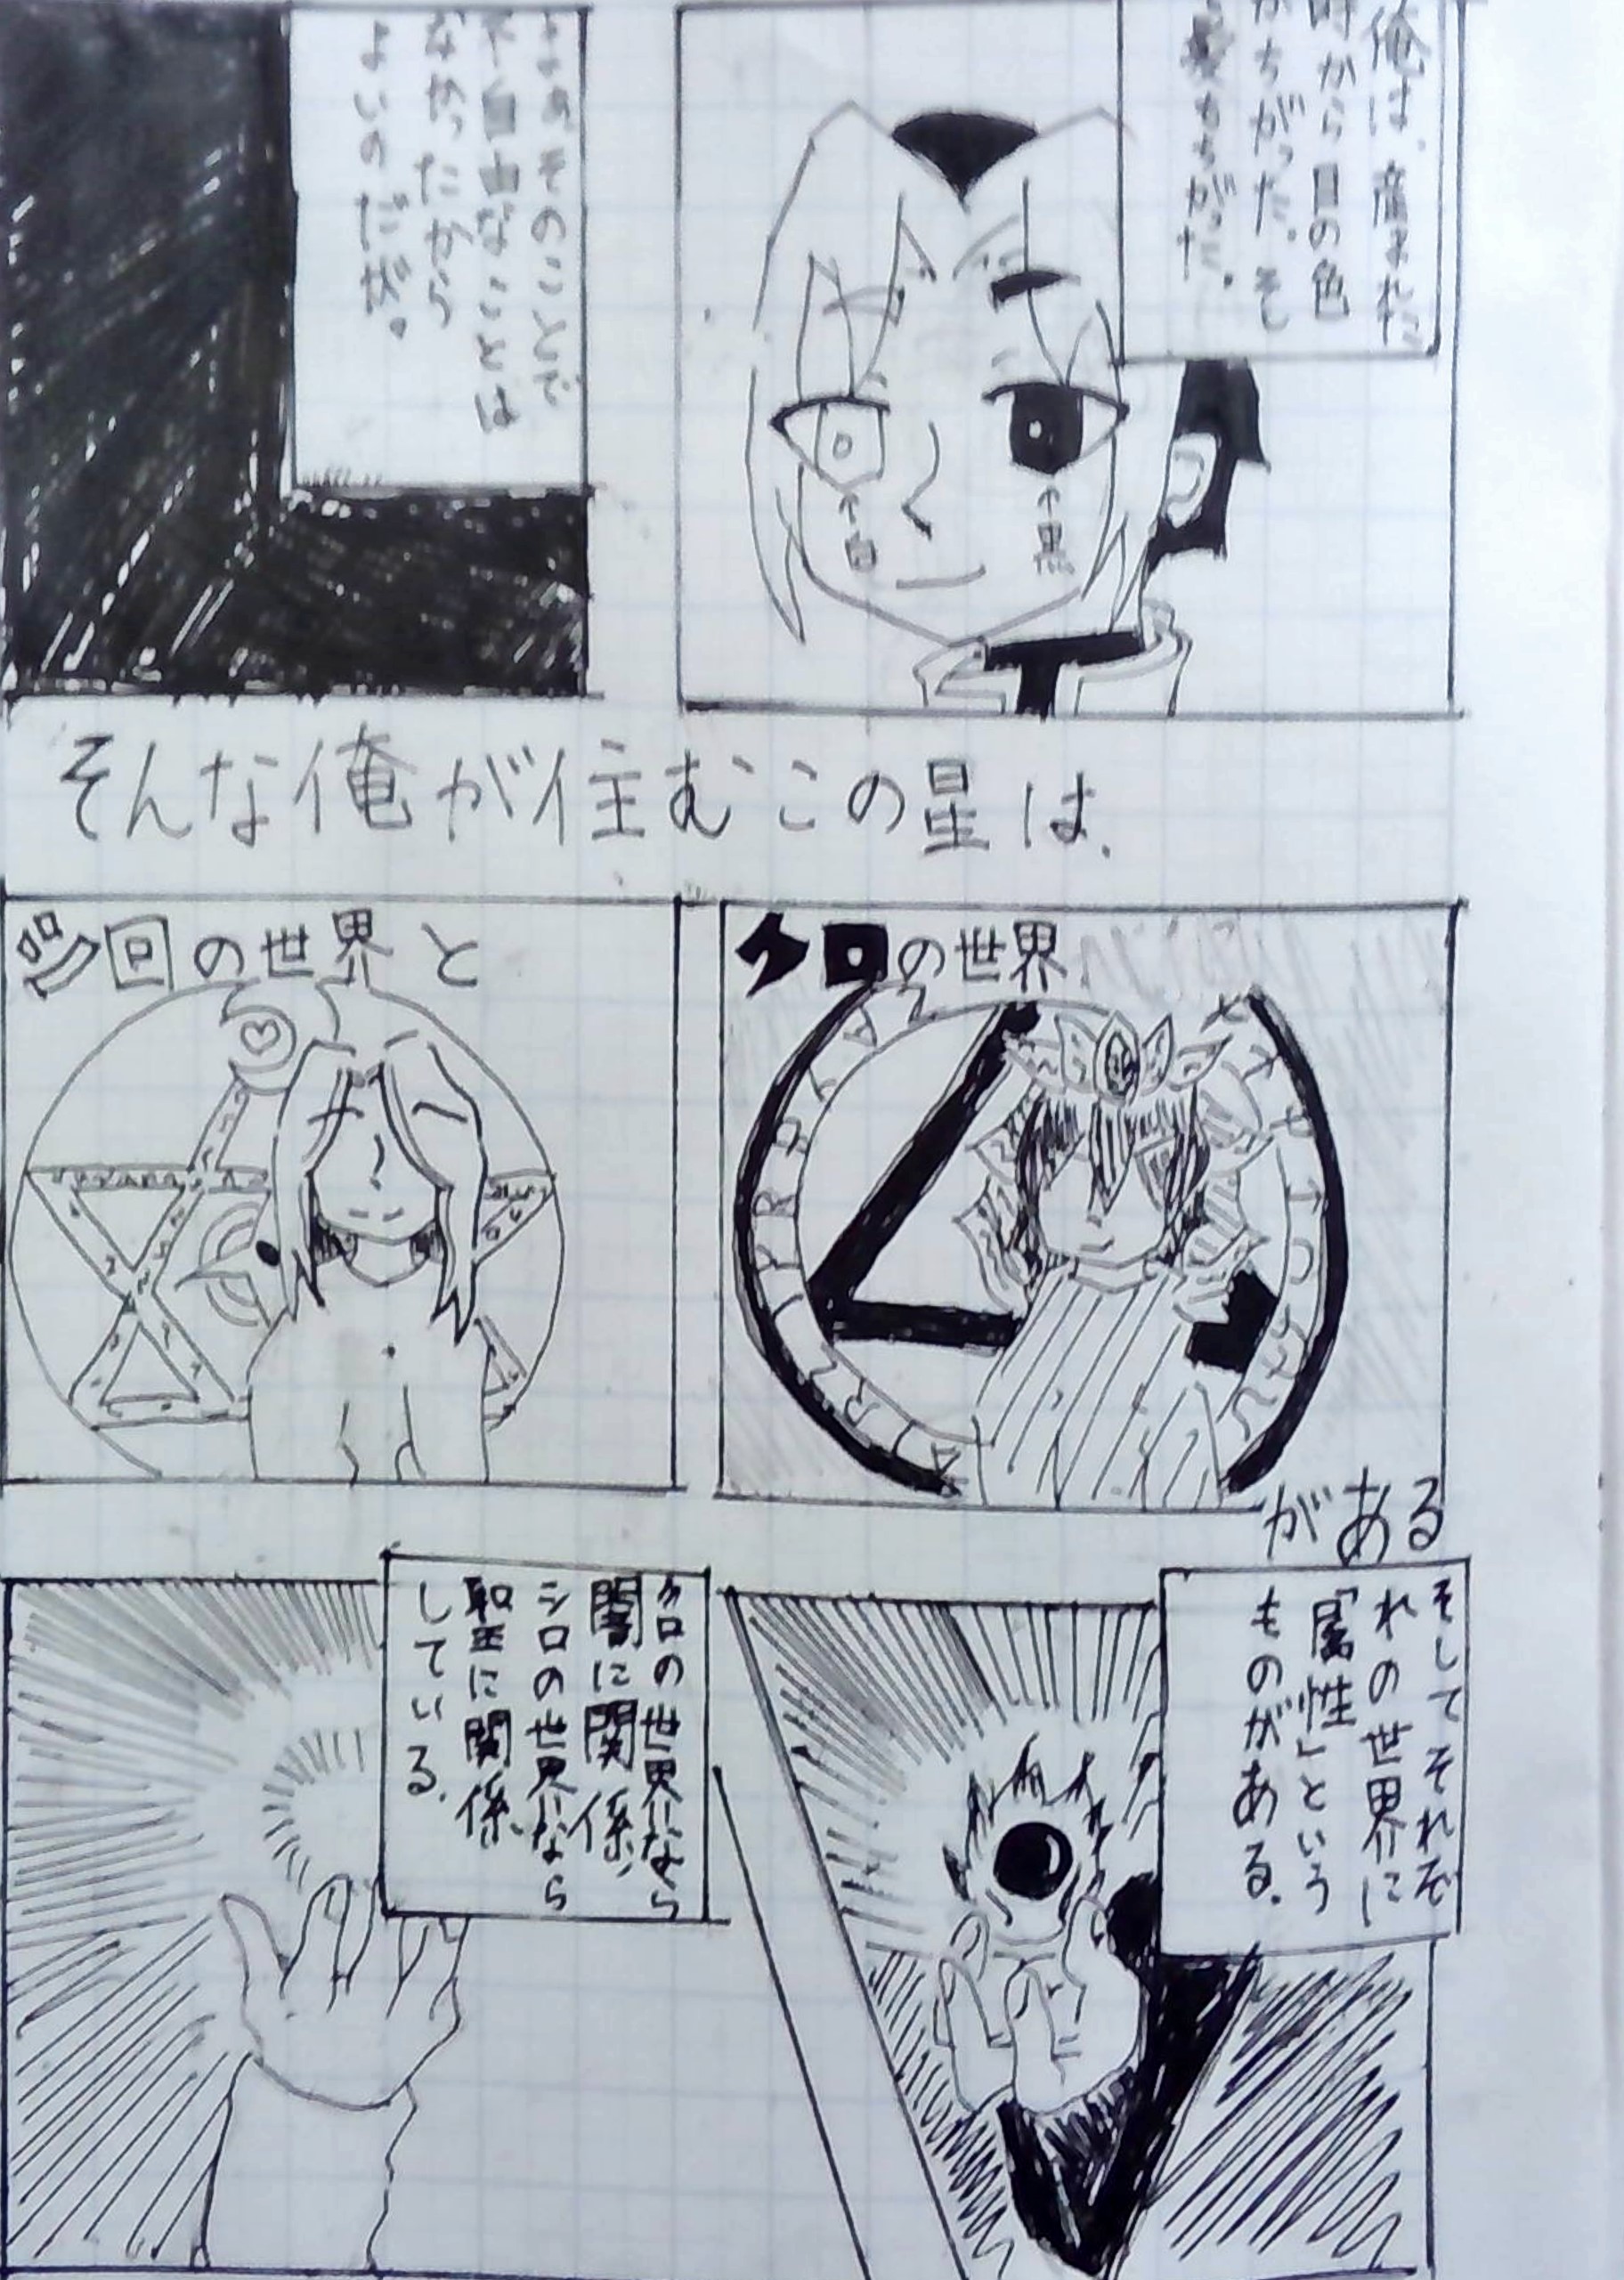 俺は、産まれた
時から目の色
がちがった。そし
髪もちがった。
←白
←黒
そのことで
不自由なことは
なかったから
よいのだが。
そんな俺が住むこの星は、
シロの世界と
クロの世界
がある
そしてそれぞ
れの世界に
「属性」という
ものがある。
クロの世界なら
闇に関係、
シロの世界なら
聖に関係
している。